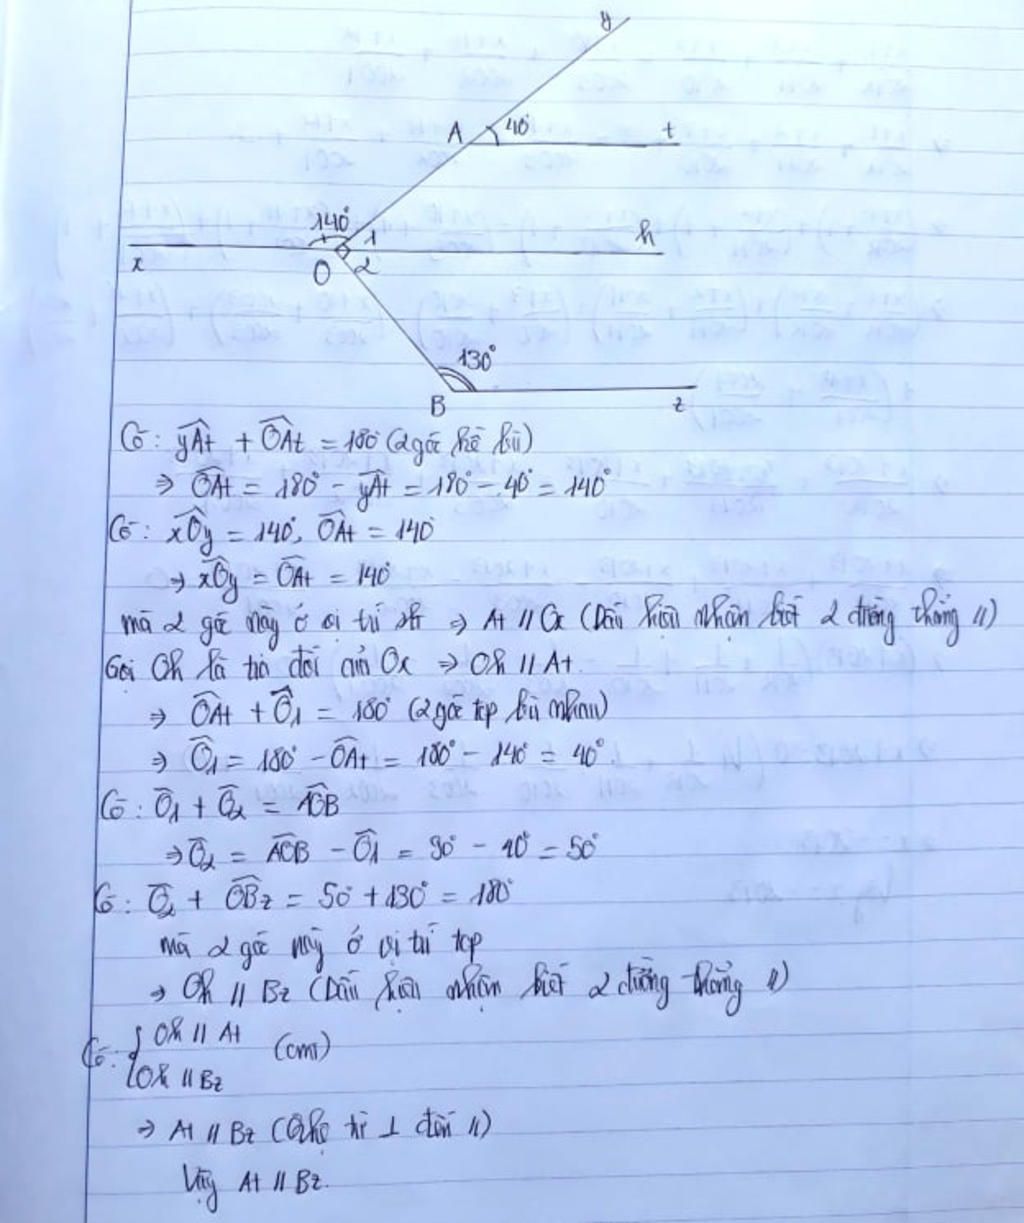 y
A 40° t
140° 1 h
x O 2
130°
B z
Có: yÂt + OÂt = 180° (2 góc kề bù)
⇒ OÂt = 180° - yÂt = 180° - 40° = 140°
Có: xÔy = 140°, OÂt = 140°
⇒ xÔy = OÂt = 140°
mà 2 góc này ở vị trí slt ⇒ At // Ox (Dấu hiệu nhận biết 2 đường thẳng //)
Gọi Oh là tia đối của Ox ⇒ Oh // At.
⇒ OÂt + Ô1 = 180° (2 góc tcp bù nhau)
⇒ Ô1 = 180° - OÂt = 180° - 140° = 40°.
Có: Ô1 + Ô2 = AÔB
⇒ Ô2 = AÔB - Ô1 = 90° - 40° = 50°
Có: Ô2 + OB̂z = 50° + 130° = 180°
mà 2 góc này ở vị trí tcp
⇒ Oh // Bz (Dấu hiệu nhận biết 2 đường thẳng //)
Có: { Oh // At (cmt)
Oh // Bz
⇒ At // Bz (Qhệ từ ⊥ đến //)
Vậy At // Bz.